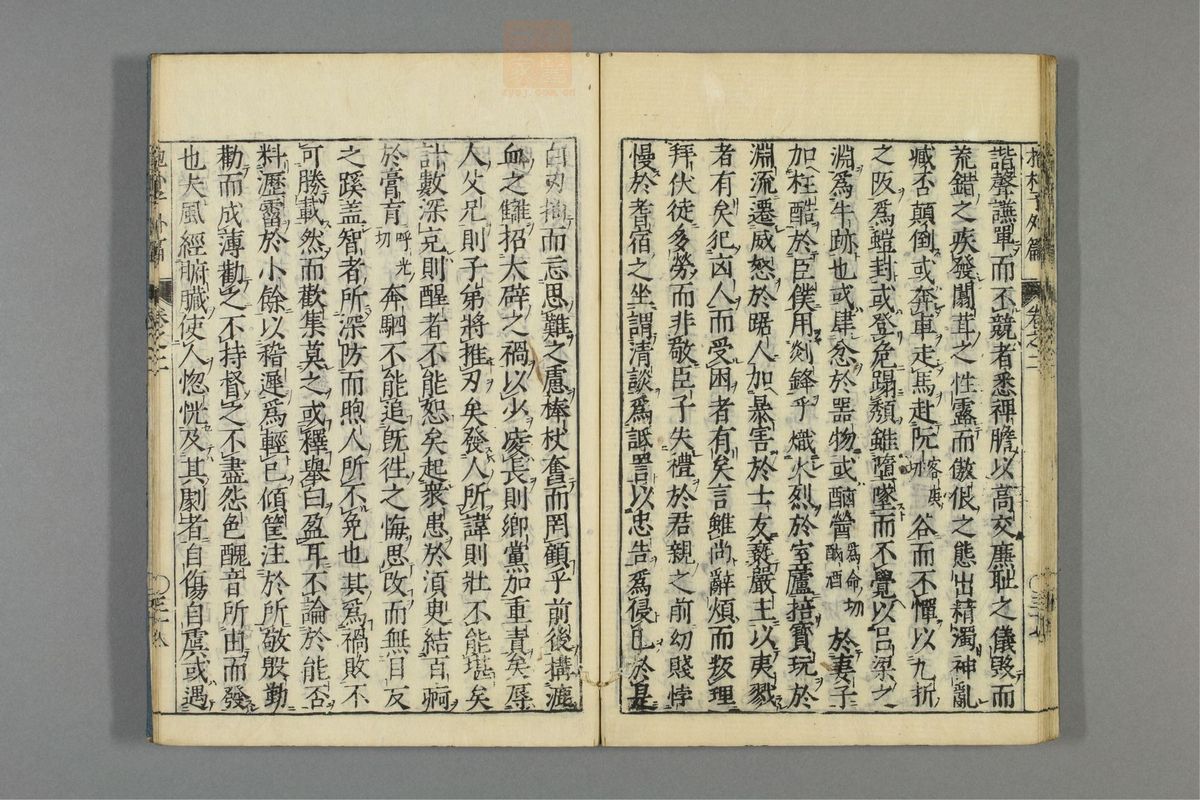 抱朴子外篇 卷之二
諧聲讌單而不競者悉裨膽以高交廉耻之儀毀而
荒錯之疾發闒茸之性露而傲佷之態出精濁神亂
臧否顛倒或奔車走馬赴阬客庚切谷而不憚以九折
之阪爲螘封或登危蹋頹雖墮墜而不覺以呂梁之
淵爲牛跡也或肆忿於器物或酗醟爲命切酗酒於妻子
加枉酷於臣僕用剡鋒乎熾火烈於室廬掊寶玩於
淵流遷威怒於踞人加暴害於士友褻嚴主以夷戮
者有矣犯凶人而受困者有矣言雖尚辭煩而叛理
拜伏徒多勞而非敬臣子失禮於君親之前幼賤悖
慢於耆宿之坐謂清談爲詆詈以忠告爲侵己於是
白刃抽而忘思難之慮棒杖奮而罔顧乎前後搆漉
血之讎招大辟之禍以少凌長則鄉黨加重責矣辱
人父兄則子弟將推刃矣發人所諱則壯不能堪矣
計數深克則醒者不能恕矣起衆患於須臾結百痾
於膏肓呼光切奔駟不能追旣徃之悔思改而無自反
之蹊盖智者所深防而煦人所不免也其爲禍敗不
可勝載然而歡集莫之或釋舉白盈耳不論於能否
料瀝霤於小餘以稽遲爲輕已傾筐注於所敬殷勤
勸而成薄勸之不持督之不盡怨色醜音所由而發
也夫風經腑臟使人惚恍及其劇者自傷自虞或遇